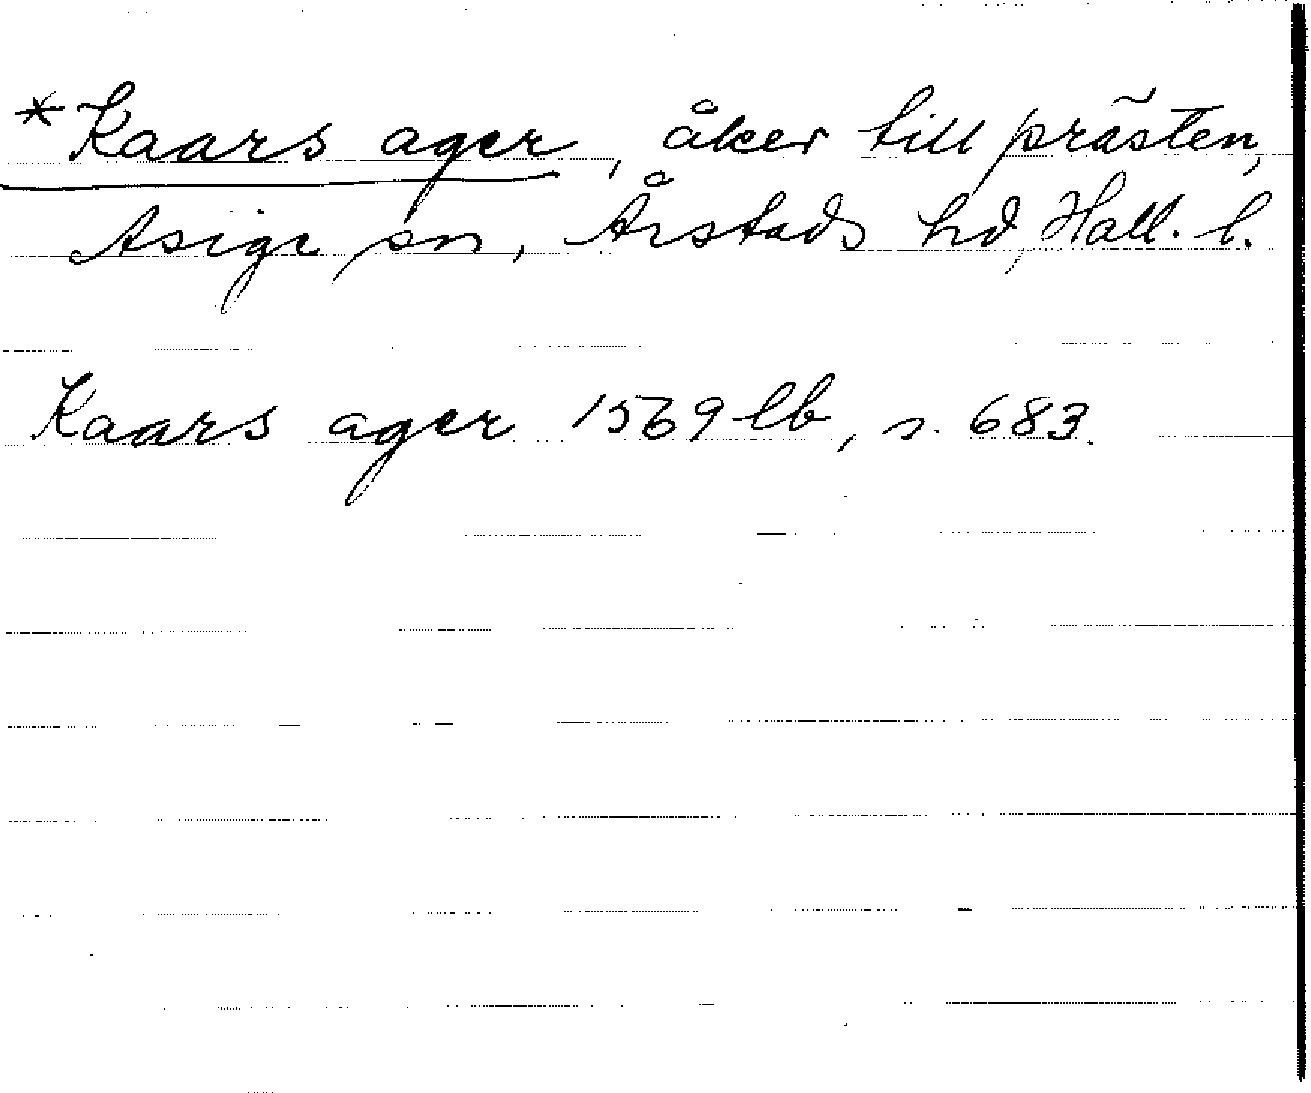 *Kaars ager, åker till prästen,
Asige sn, Årstads hd, Hall. l.
Kaars ager 1569 lb, s. 683.